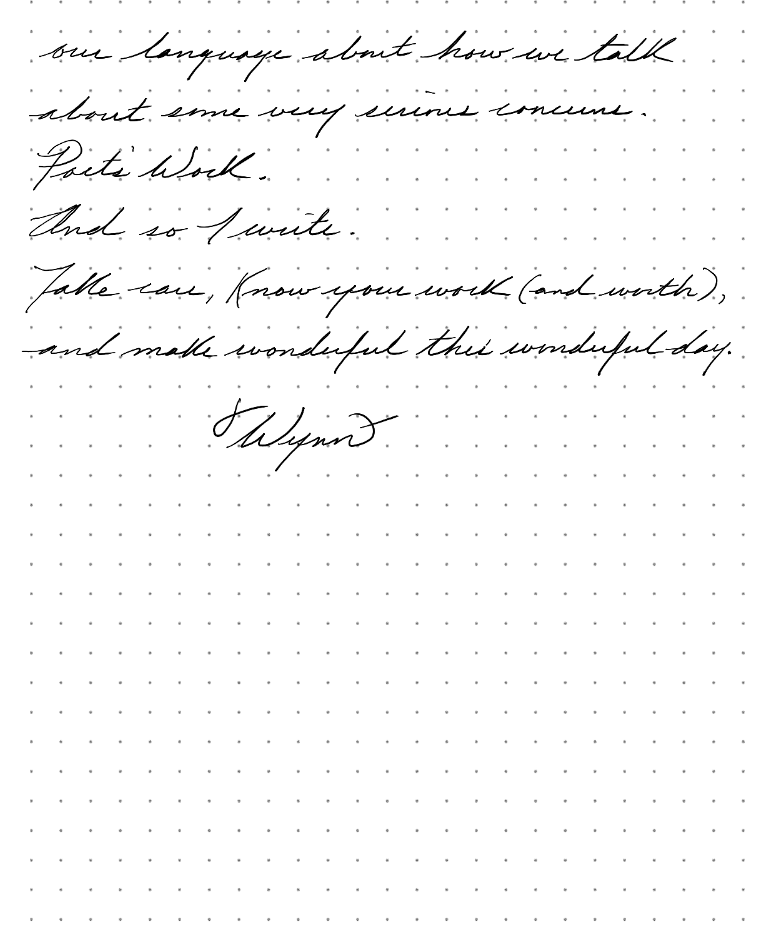 our language about how we talk
about some very serious concerns.
Poet's Work.
And so I write.
Take care, Know your work (and worth),
and make wonderful this wonderful day.
Wynn